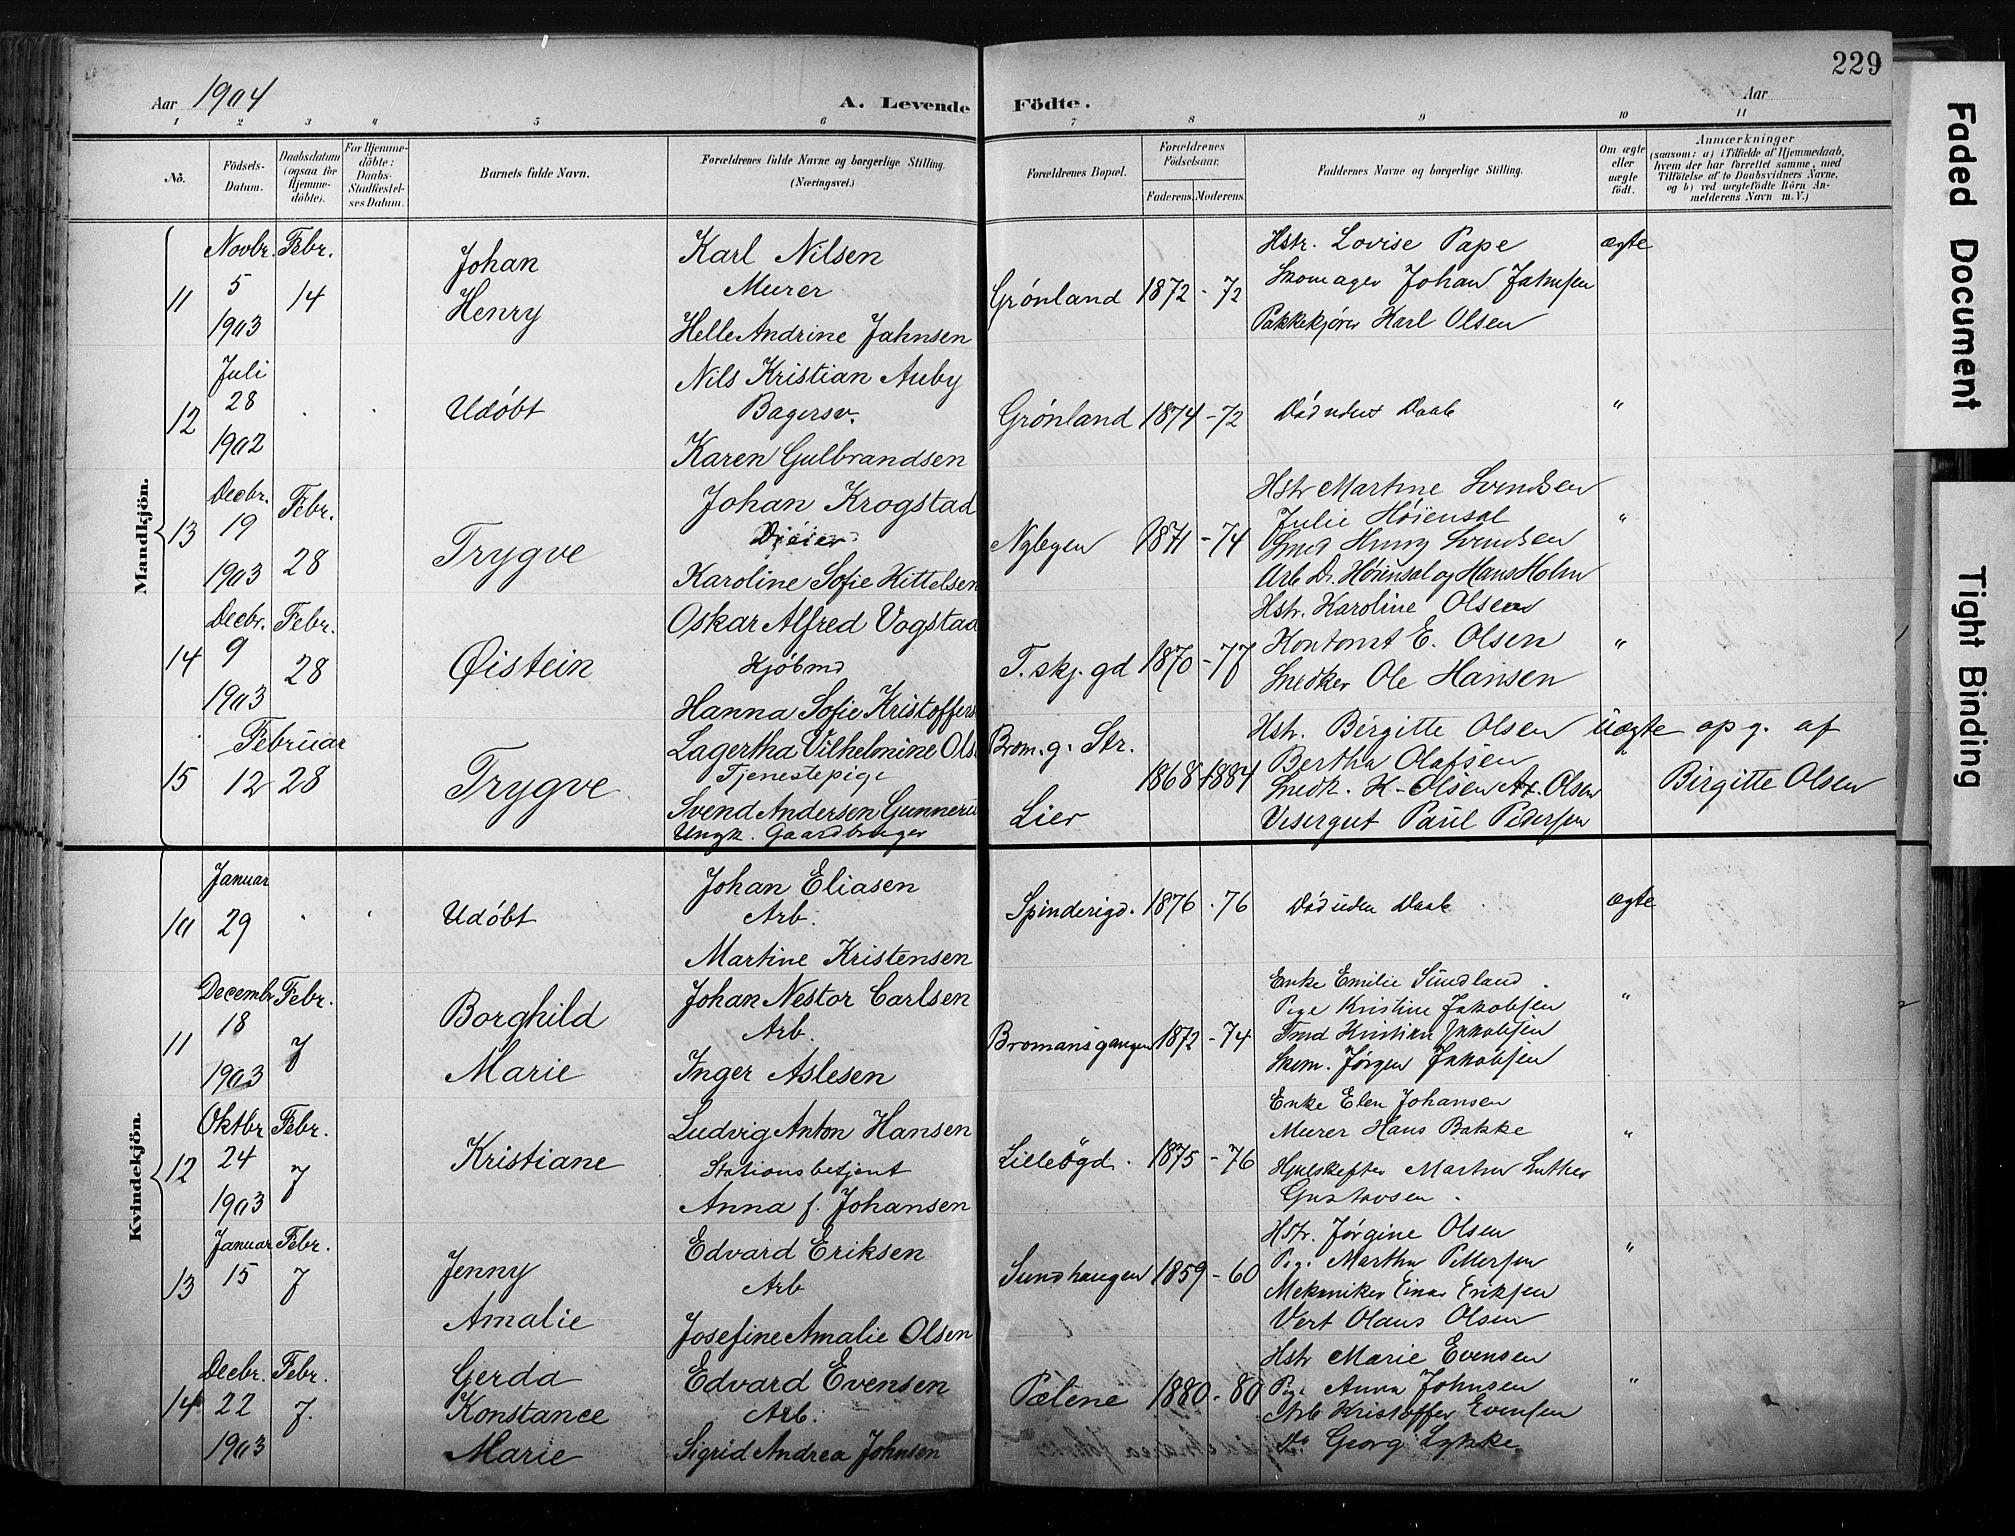 229
Aar 1904
A. Levende Födte.
Aar
1 2 3 4 5 6 7 8 9 10 11
No.
Födsels-Datum.
Daabsdatum (ogsaa for Hjemme-döbte).
For Hjemme-döbte: Daabs-Stadfæstel-ses Datum.
Barnets fulde Navn.
Forældrenes fulde Navne og borgerlige Stilling. (Næringsvei.)
Forældrenes Bopæl.
Forældrenes Födselsaar.
Faderens. Moderens.
Faddernes Navne og borgerlige Stilling.
Om ægte eller uægte födt.
Anmærkninger
(saasom: a) i Tilfælde af Hjemmedaab,
hvem der har forrettet samme, med
Tilföielse af to Daabsvidners Navne,
og b) ved uægtefödte Börn An-
melderens Navn m. V.)
Mandkjön.
11 Novbr. 5 1903 Febr. 14
Johan Henry
Karl Nilsen
Murer
Helle Andrine Jahnsen
Grønland 1872 - 72
Hstr. Lovise Pape
Skomager Johan Jahnsen
Pakkekjører Karl Olsen
ægte
12 Juli 28 1902
Udøbt
Nils Kristian Auby
Bagersv.
Karen Gulbrandsen
Grønland 1874 - 72
Død uden Daab
"
13 Decbr. 19 1903 Febr. 28
Trygve
Johan Krogstad
Karoline Sofie Kittelsen
Nybyen 1871 - 74
Hstr Martine Svendsen
Julie Høiensal
Smed Svendsen
Arb. D. Høiensal og Hans Holm
"
14 Decbr. 9 1903 Febr. 28
Øistein
Oskar Alfred Vogstad
Kjøbmd
Hanna Sofie Kristoffers
T. skj. gd 1870 - 77
Hstr. Karoline Olsen
Kontormt E. Olsen
Snedker Ole Hansen
"
15 Februar 12 28
Trygve
Lagertha Vilhelmine Ols
Tjenestepige
Svend Andersen Gunneru
Ungk. Gaardbruger
Brom. g. Str.
Lier
1868 - 1884
Hstr. Birgitte Olsen
Bertha Olafsen
Snedk. K. Olsen Ax. Olsen
Visergut Paul Pedersen
uægte
opg. af
Birgitte Olsen
Kvindekjön.
10 Januar 29
Udøbt
Johan Eliasen
Arb.
Martine Kristensen
Spinderigd. 1876 - 76
Død uden Daab
ægte
11 Decembr 18 1903 Febr. 7
Borghild Marie
Johan Nestor Carlsen
Arb.
Inger Aslesen
Bromansgangen 1872 - 74
Enke Emilie Sundland
Pige Kristine Jakobsen
Smd Kristian Jakobsen
Skom. Jørgen Jakobsen
"
12 Oktbr 24 1903 Febr. 7
Kristiane
Ludvig Anton Hansen
Stationsbetjent
Anna f. Johansen
Lilleögd. 1875 - 76
Enke Elen Johansen
Murer Hans Bakke
Martin Luther
Gustavsen
"
13 Januar 15 Febr. 7
Jenny Amalie
Edvard Eriksen
Arb
Josefine Amalie Olsen
Sundhaugen 1859 - 60
Hstr. Jørgine Olsen
Pige Martha Pettersen
Mekaniker Einar Eriksen
Vert Olaus Olsen
"
14 Decbr. 22 1903 Febr. 7.
Gerda Konstance Marie
Edvard Evensen
Arb.
Sigrid Andrea Johnsen
Pælene 1880 - 80
Hstr Marie Evensen
Pige Anna Johnsen
Arb Kristoffer Evensen
Do Georg Lykke
"
Faded Document
Tight Binding